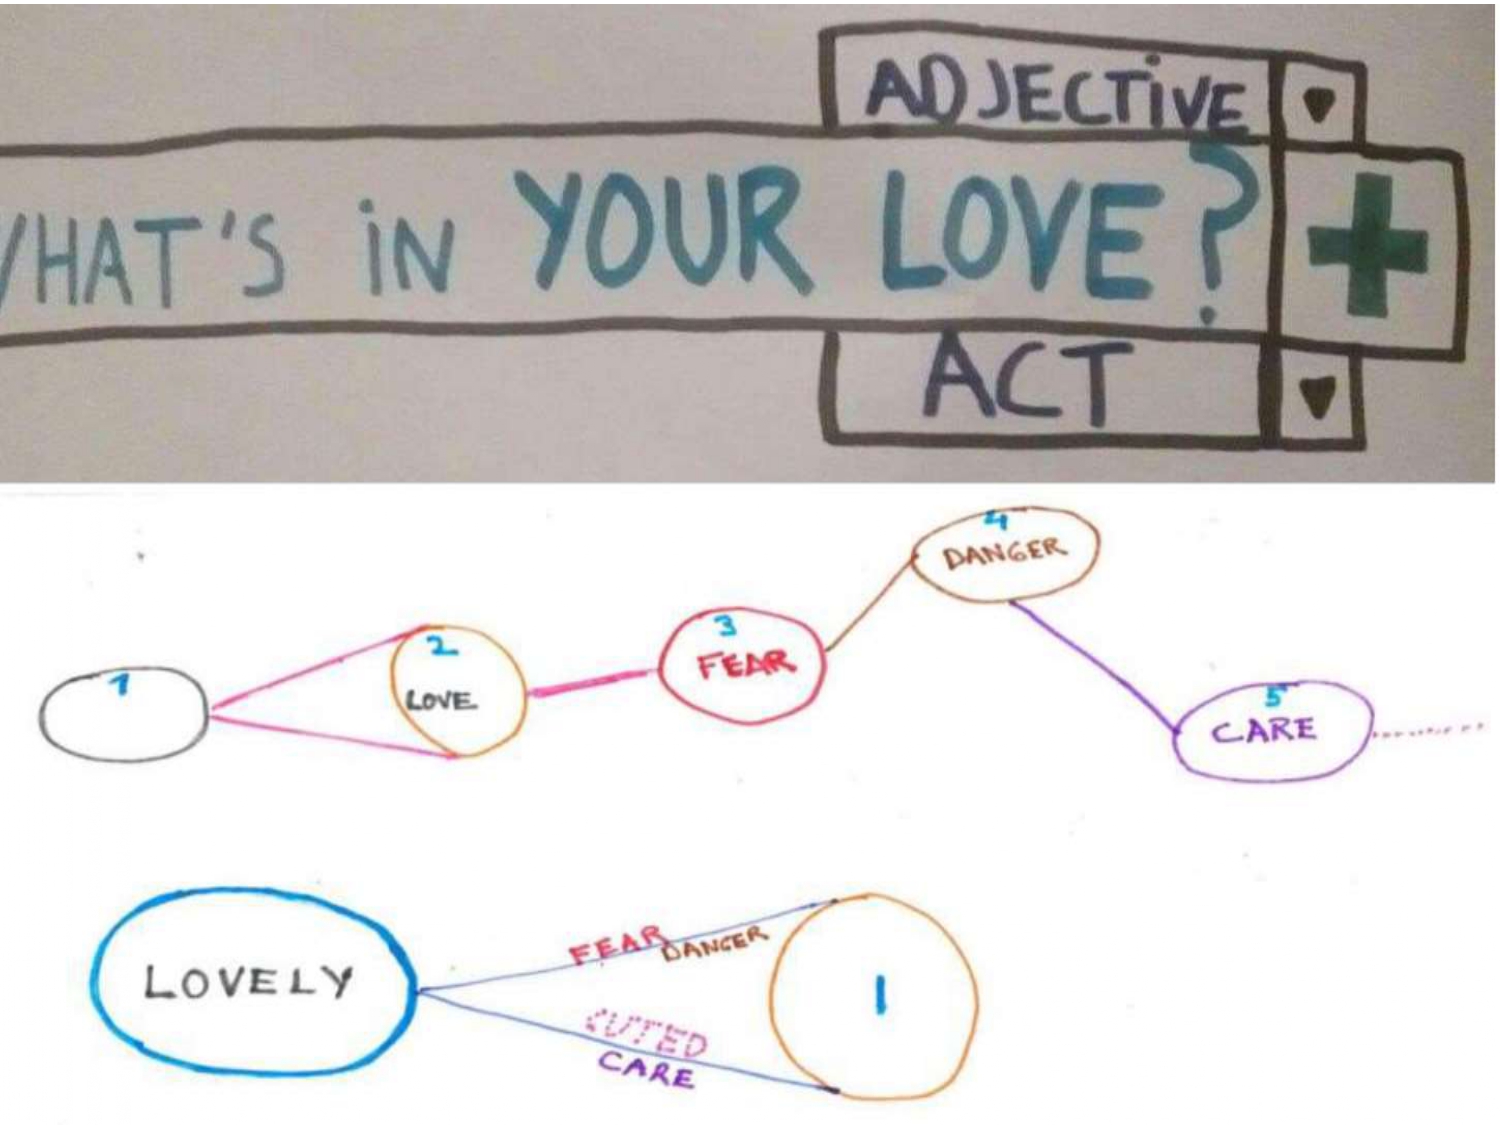 ADJECTIVE
WHAT'S iN YOUR LOVE?
ACT
1
2
LOVE
3
FEAR
4
DANGER
5
CARE
LOVELY
FEAR DANGER
CUTED
CARE
1